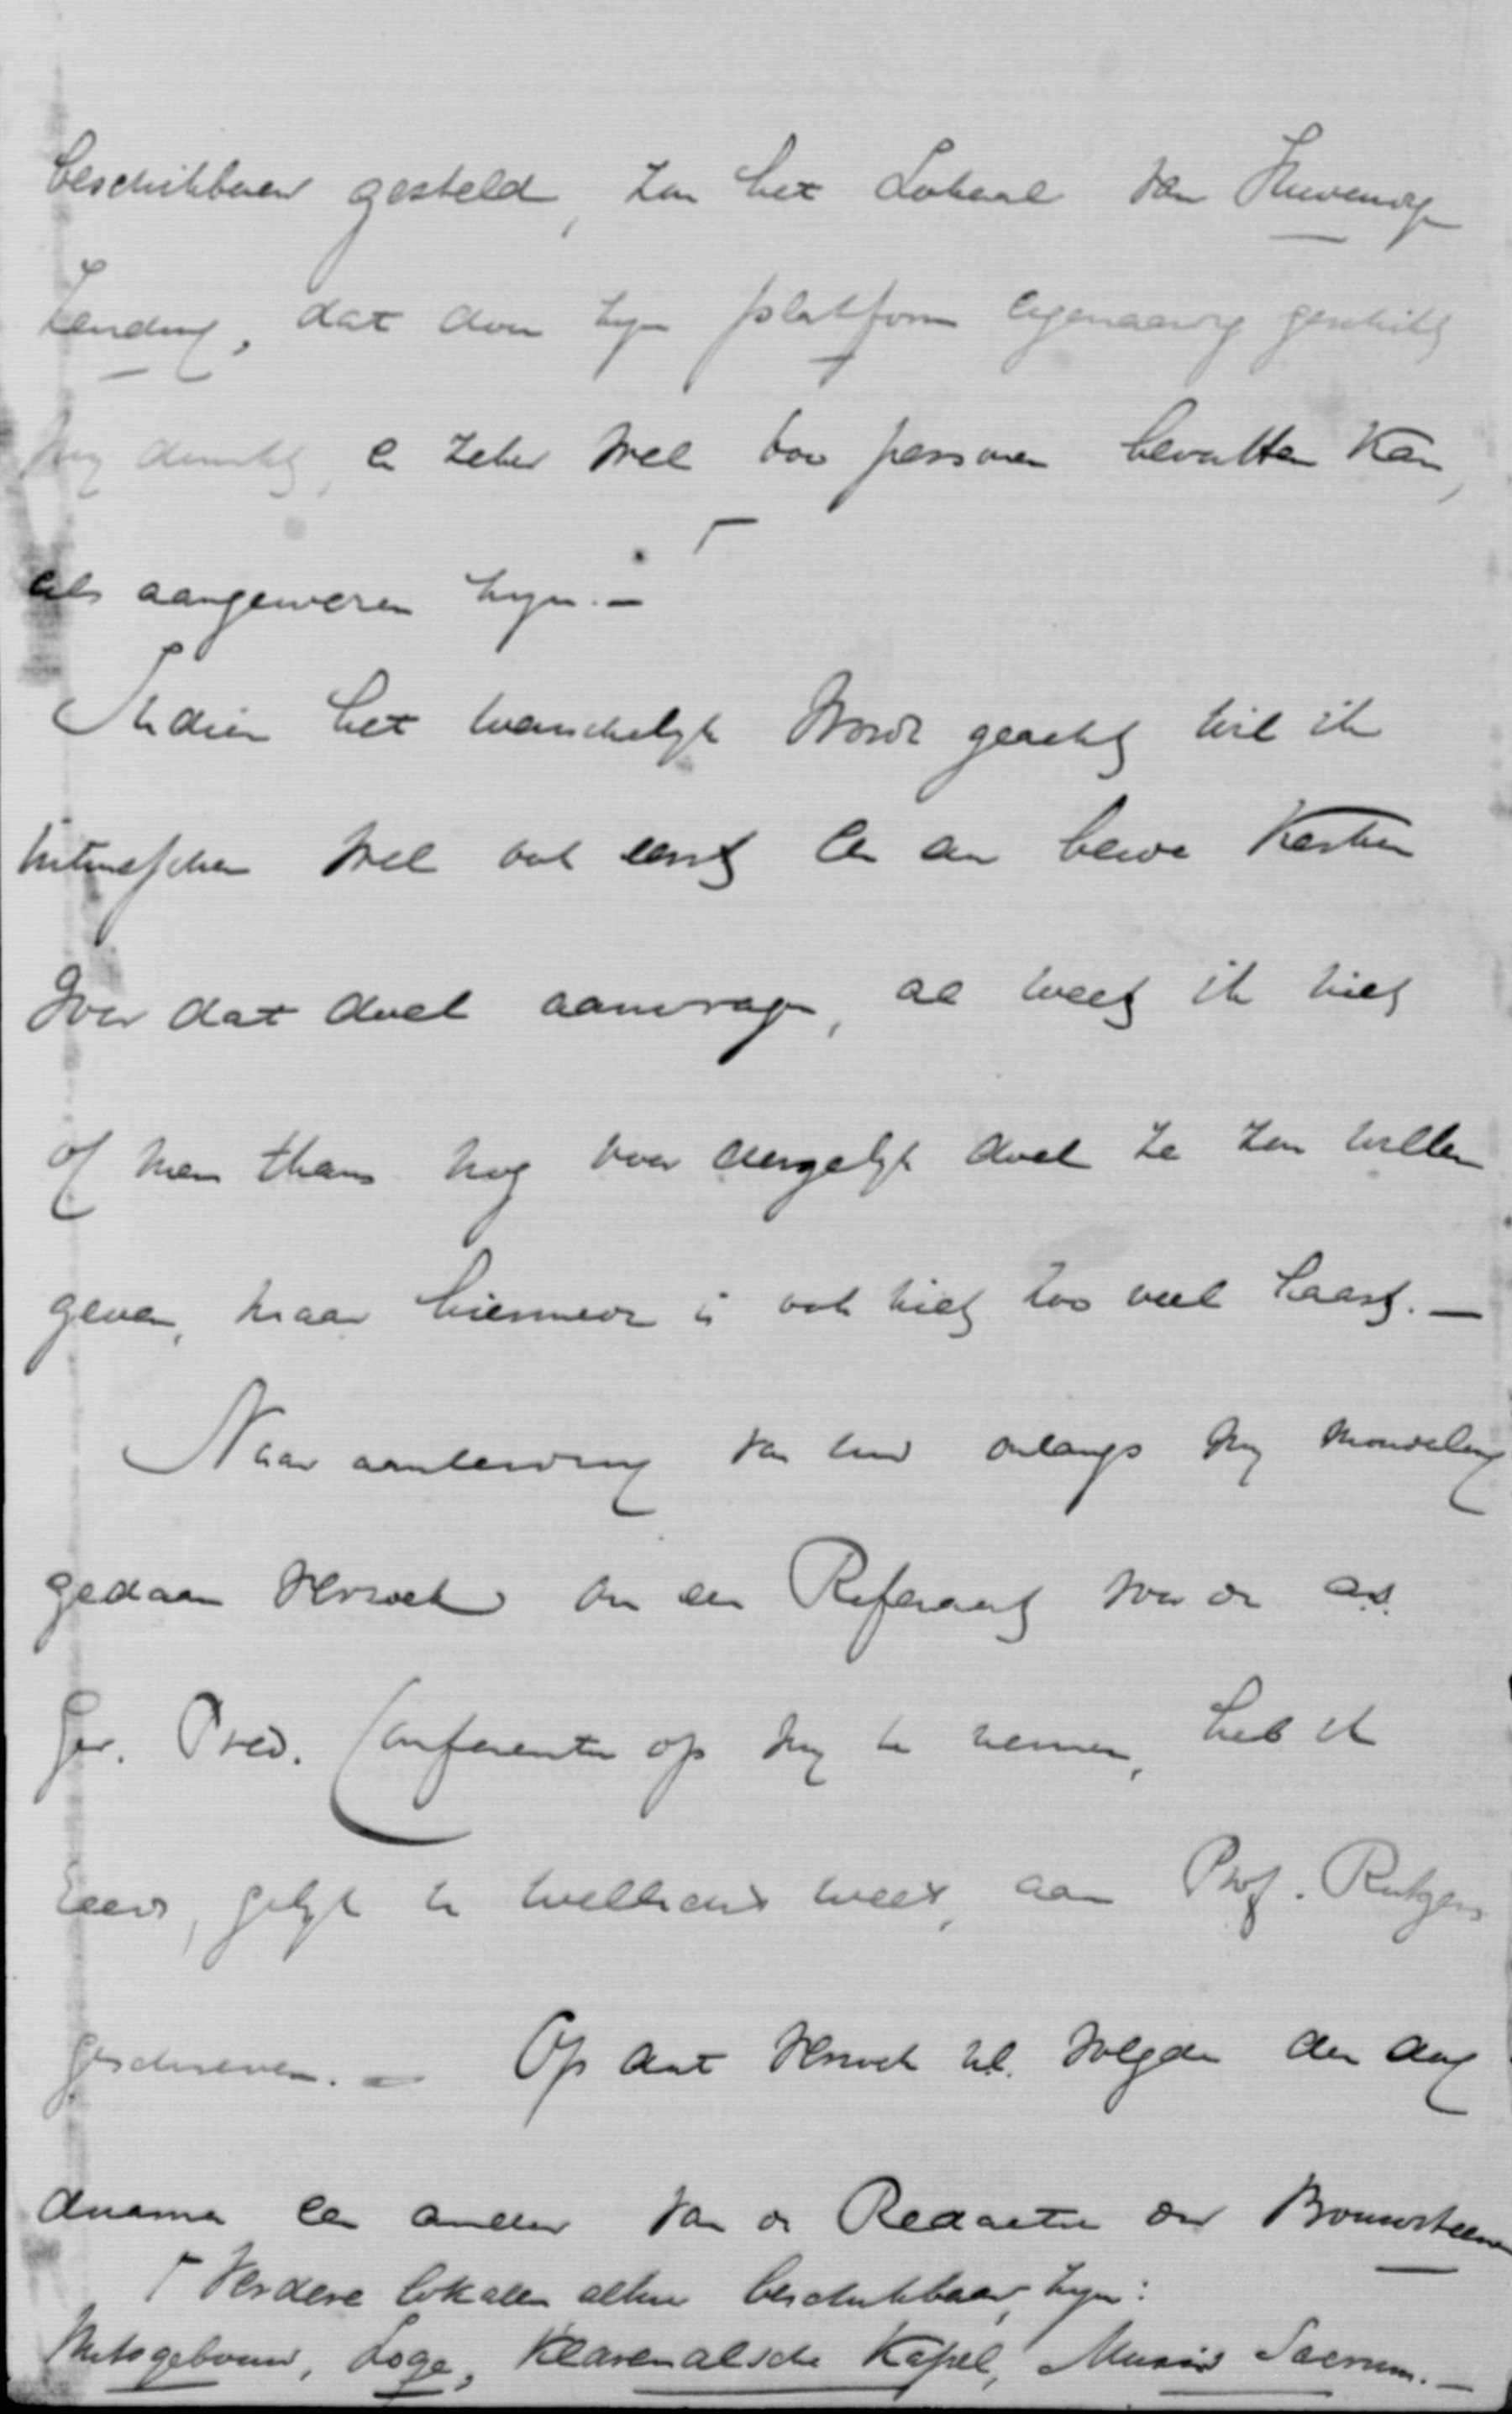 beschikbaar gesteld, zou het Lokaal van Inwendige
Zending, dat door zijn platform eigenaardig geschikt
mij dunkt, en zeker wel 600 personen bevatten kan,
als aangewezen zijn. — ⌈
Indien het wenschelijk wordt geacht wil ik
intusschen wel ook eerst een der beide Kerken
voor dat doel aanvragen, al weet ik niet
of men thans nog voor dergelijk doel ze zou willen
geven, maar hiermede is ook niet zoo veel haast. —
Naar aanleiding van uw onlangs mij mondeling
gedaan verzoek om een Referaat voor de a.s.
Ger. Pred. Conferentie op mij te nemen, heb ik
reeds, gelijk u wellicht weet, aan Prof. Rutgers
geschreven. — Op dat verzoek nl. volgde den dag
daarna een ander van de Redactie der Bouwsteenen
⌈ Verdere lokalen alhier beschikbaar, zijn:
Nutsgebouw, Loge, Klarenalsche Kapel, Musis Sacrum. —